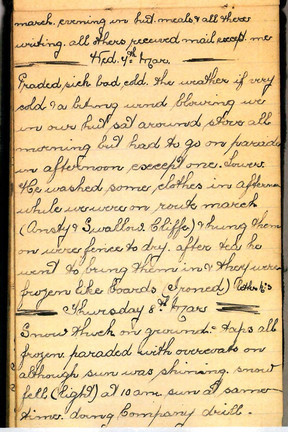 march. evening in hut. meals & all there
writing. all others received mail except me
Wed. 7th Mar.
Praded sick bad cold. the weather if very
cold & a biting wind blowing we
in our hut sat around stove all
morning but had to go on parade
in afternoon except one. Lowe.
He washed some clothes in afternoon
while we were on route march
(Ansty & Swallow Cliffe) & hung them
on wire fence to dry. after tea he
went to bring them in & they were
frozen like boards (Ironed)
Thursday 8th Mar
Snow thick on ground. taps all
frozen. paraded with overcoats on
although sun was shining. snow
fell (light) at 10 am. sun at same
time. doing Company drill.